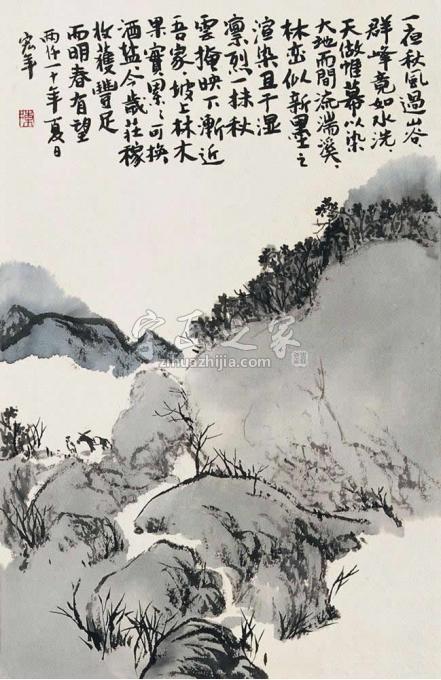 一夜秋風過山谷、
群峰竟如水洗、
天做帷幕以染
大地而間流湍溪、
林峦似新墨之
渲染且干湿
凛烈一抹秋
雲掩映下漸近
吾家、坡上林木
果實累累可换
酒盐今歲莊稼
收獲豐足
而明春有望
丙戌一十年夏日
宏年
字画之家
zihuazhijia.com